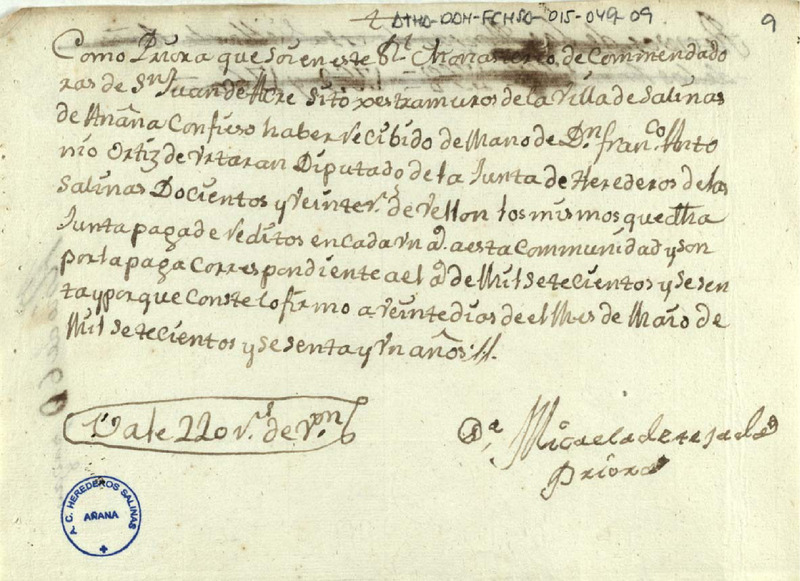 ATHA-DOH-FCHSA-015-049-09
9
Como Priora que soi en este Rl Monasterio, de Commendado
ras de Sn Juan de Acre Sito xestramuros de la Villa de Salinas
de Añana Confieso haber recibido de Mano de Dn franco Anto
nio Ortiz de Vrtaran Diputado de la Junta de Herederos de las
Salinas Docientos y Veinte rs de Vellon los mismos que dha
Junta paga de reditos en cada Vn a. a esta Communidad y son
por la paga Correspondiente a el a de Mil setecientos y sesen
ta y porque Conste lo firmo a Veinte dias de el Mes de Maio de
Mil setecientos y sesenta y Vn años
Vale 220 rs de Von
Da Micaela de
Priora
C. HEREDEROS SALINAS
AÑANA